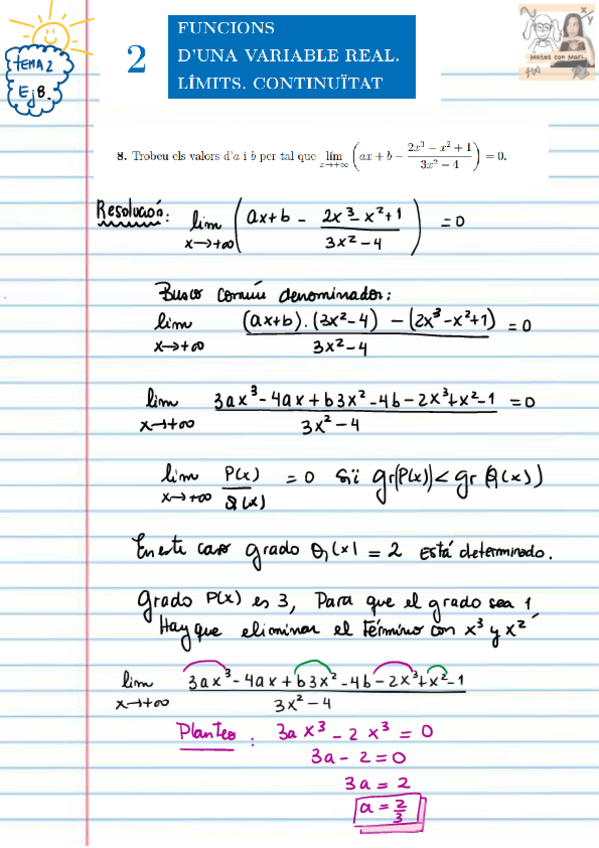 TEMA 2
Ej 8.
2
FUNCIONS
D'UNA VARIABLE REAL.
LÍMITS. CONTINUÏTAT
Mates con Mari
8. Trobeu els valors d'a i b per tal que lím x→+∞ (ax + b − (2x³ − x² + 1)/(3x² − 4)) = 0.
Resolución: lim x→+∞ (ax+b - (2x³-x²+1)/(3x²-4)) = 0
Busco común denominador:
lim x→+∞ ((ax+b).(3x²-4) - (2x³-x²+1))/(3x²-4) = 0
lim x→+∞ (3ax³-4ax+b3x²-4b-2x³+x²-1)/(3x²-4) = 0
lim x→+∞ P(x)/Q(x) = 0 Sii gr(P(x)) < gr(Q(x))
En este caso grado Q(x) = 2 está determinado.
Grado P(x) es 3, Para que el grado sea 1,
Hay que eliminar el término con x³ y x²
lim x→+∞ (3ax³-4ax+b3x²-4b-2x³+x²-1)/(3x²-4)
Planteo : 3ax³ - 2x³ = 0
3a - 2 = 0
3a = 2
a = 2/3